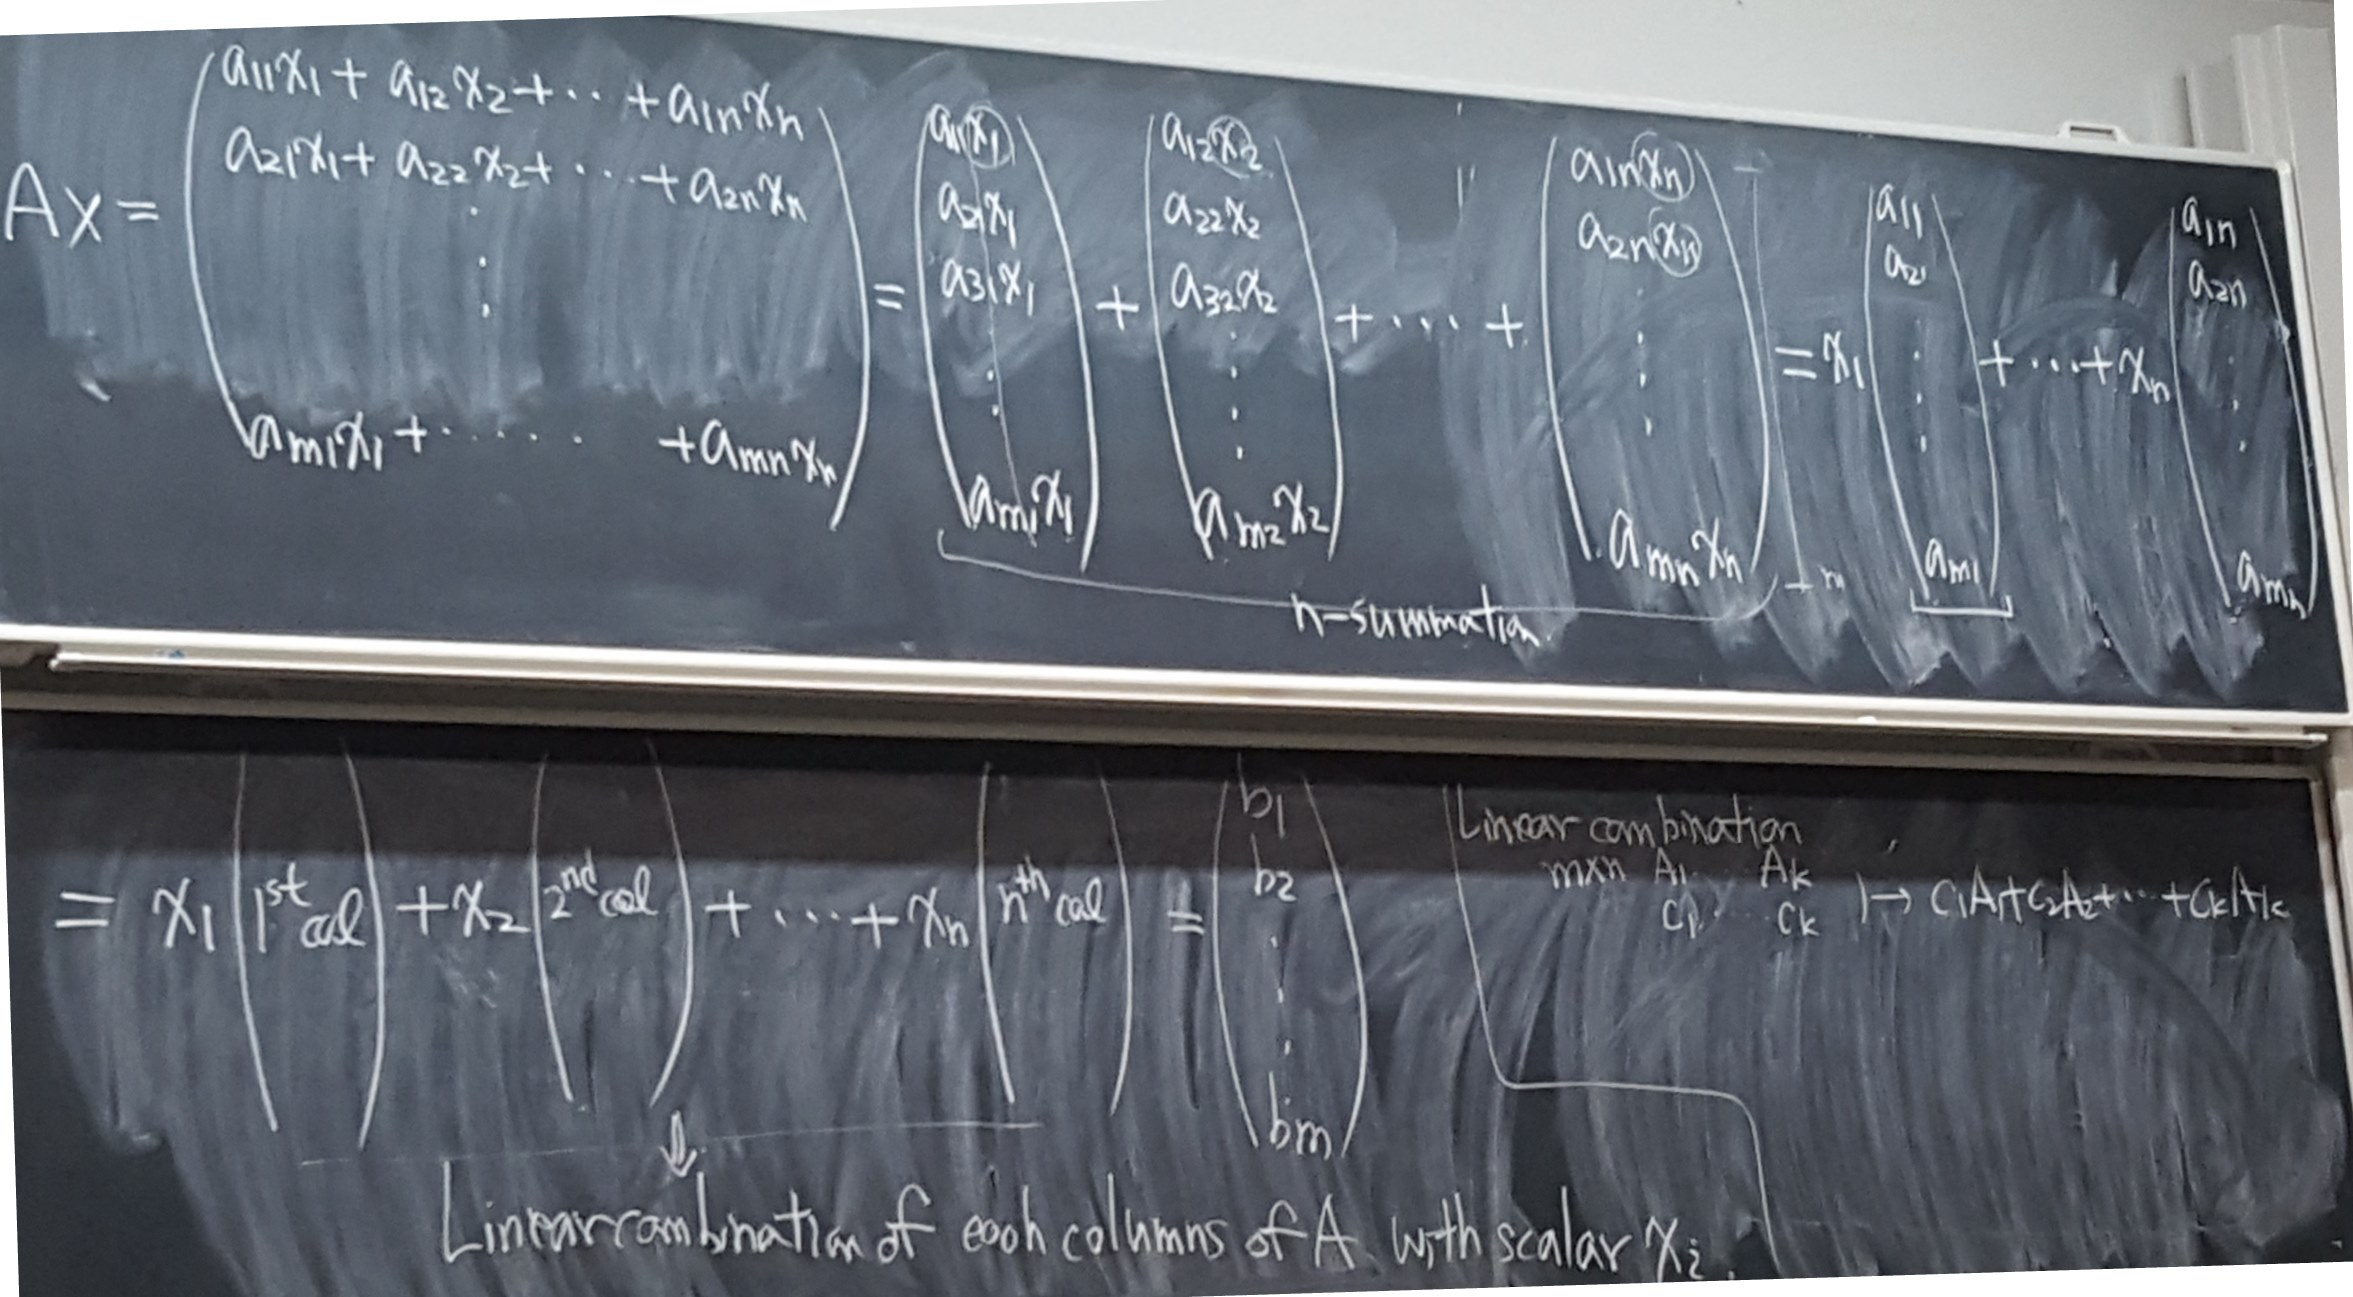 Ax = ( a11x1 + a12x2 + ·· + a1nxn
a21x1 + a22x2 + ··· + a2nxn
⋮
am1x1 + ······ + amnxn )
= ( a11x1
a21x1
a31x1
⋮
am1x1 )
+ ( a12x2
a22x2
a32x2
⋮
am2x2 )
+ ··· +
( a1nxn
a2nxn
⋮
amnxn )
= x1 ( a11
a21
⋮
am1 )
+ ··· + xn ( a1n
a2n
⋮
amn )
n-summation
= x1 ( 1st col ) + x2 ( 2nd col ) + ··· + xn ( nth col ) = ( b1
b2
⋮
bm )
Linear combination of each columns of A with scalar xi.
Linear combination
mxn A1 ·· Ak
c1 ·· ck ↦ c1A1+c2A2+···+ckAk